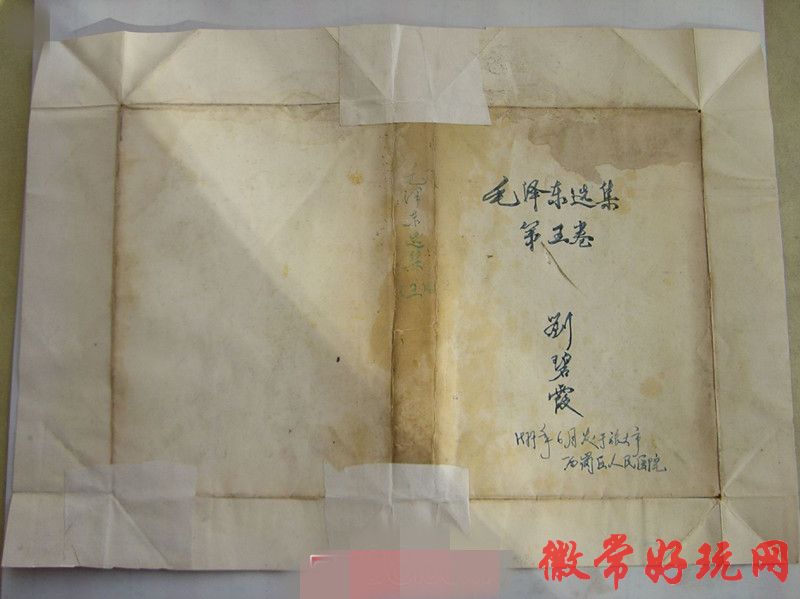 毛泽东选集
第五卷
刘碧霞
1977年6月发于旅大市
西岗区人民医院
毛泽东选集
(五卷)
徽常好玩网